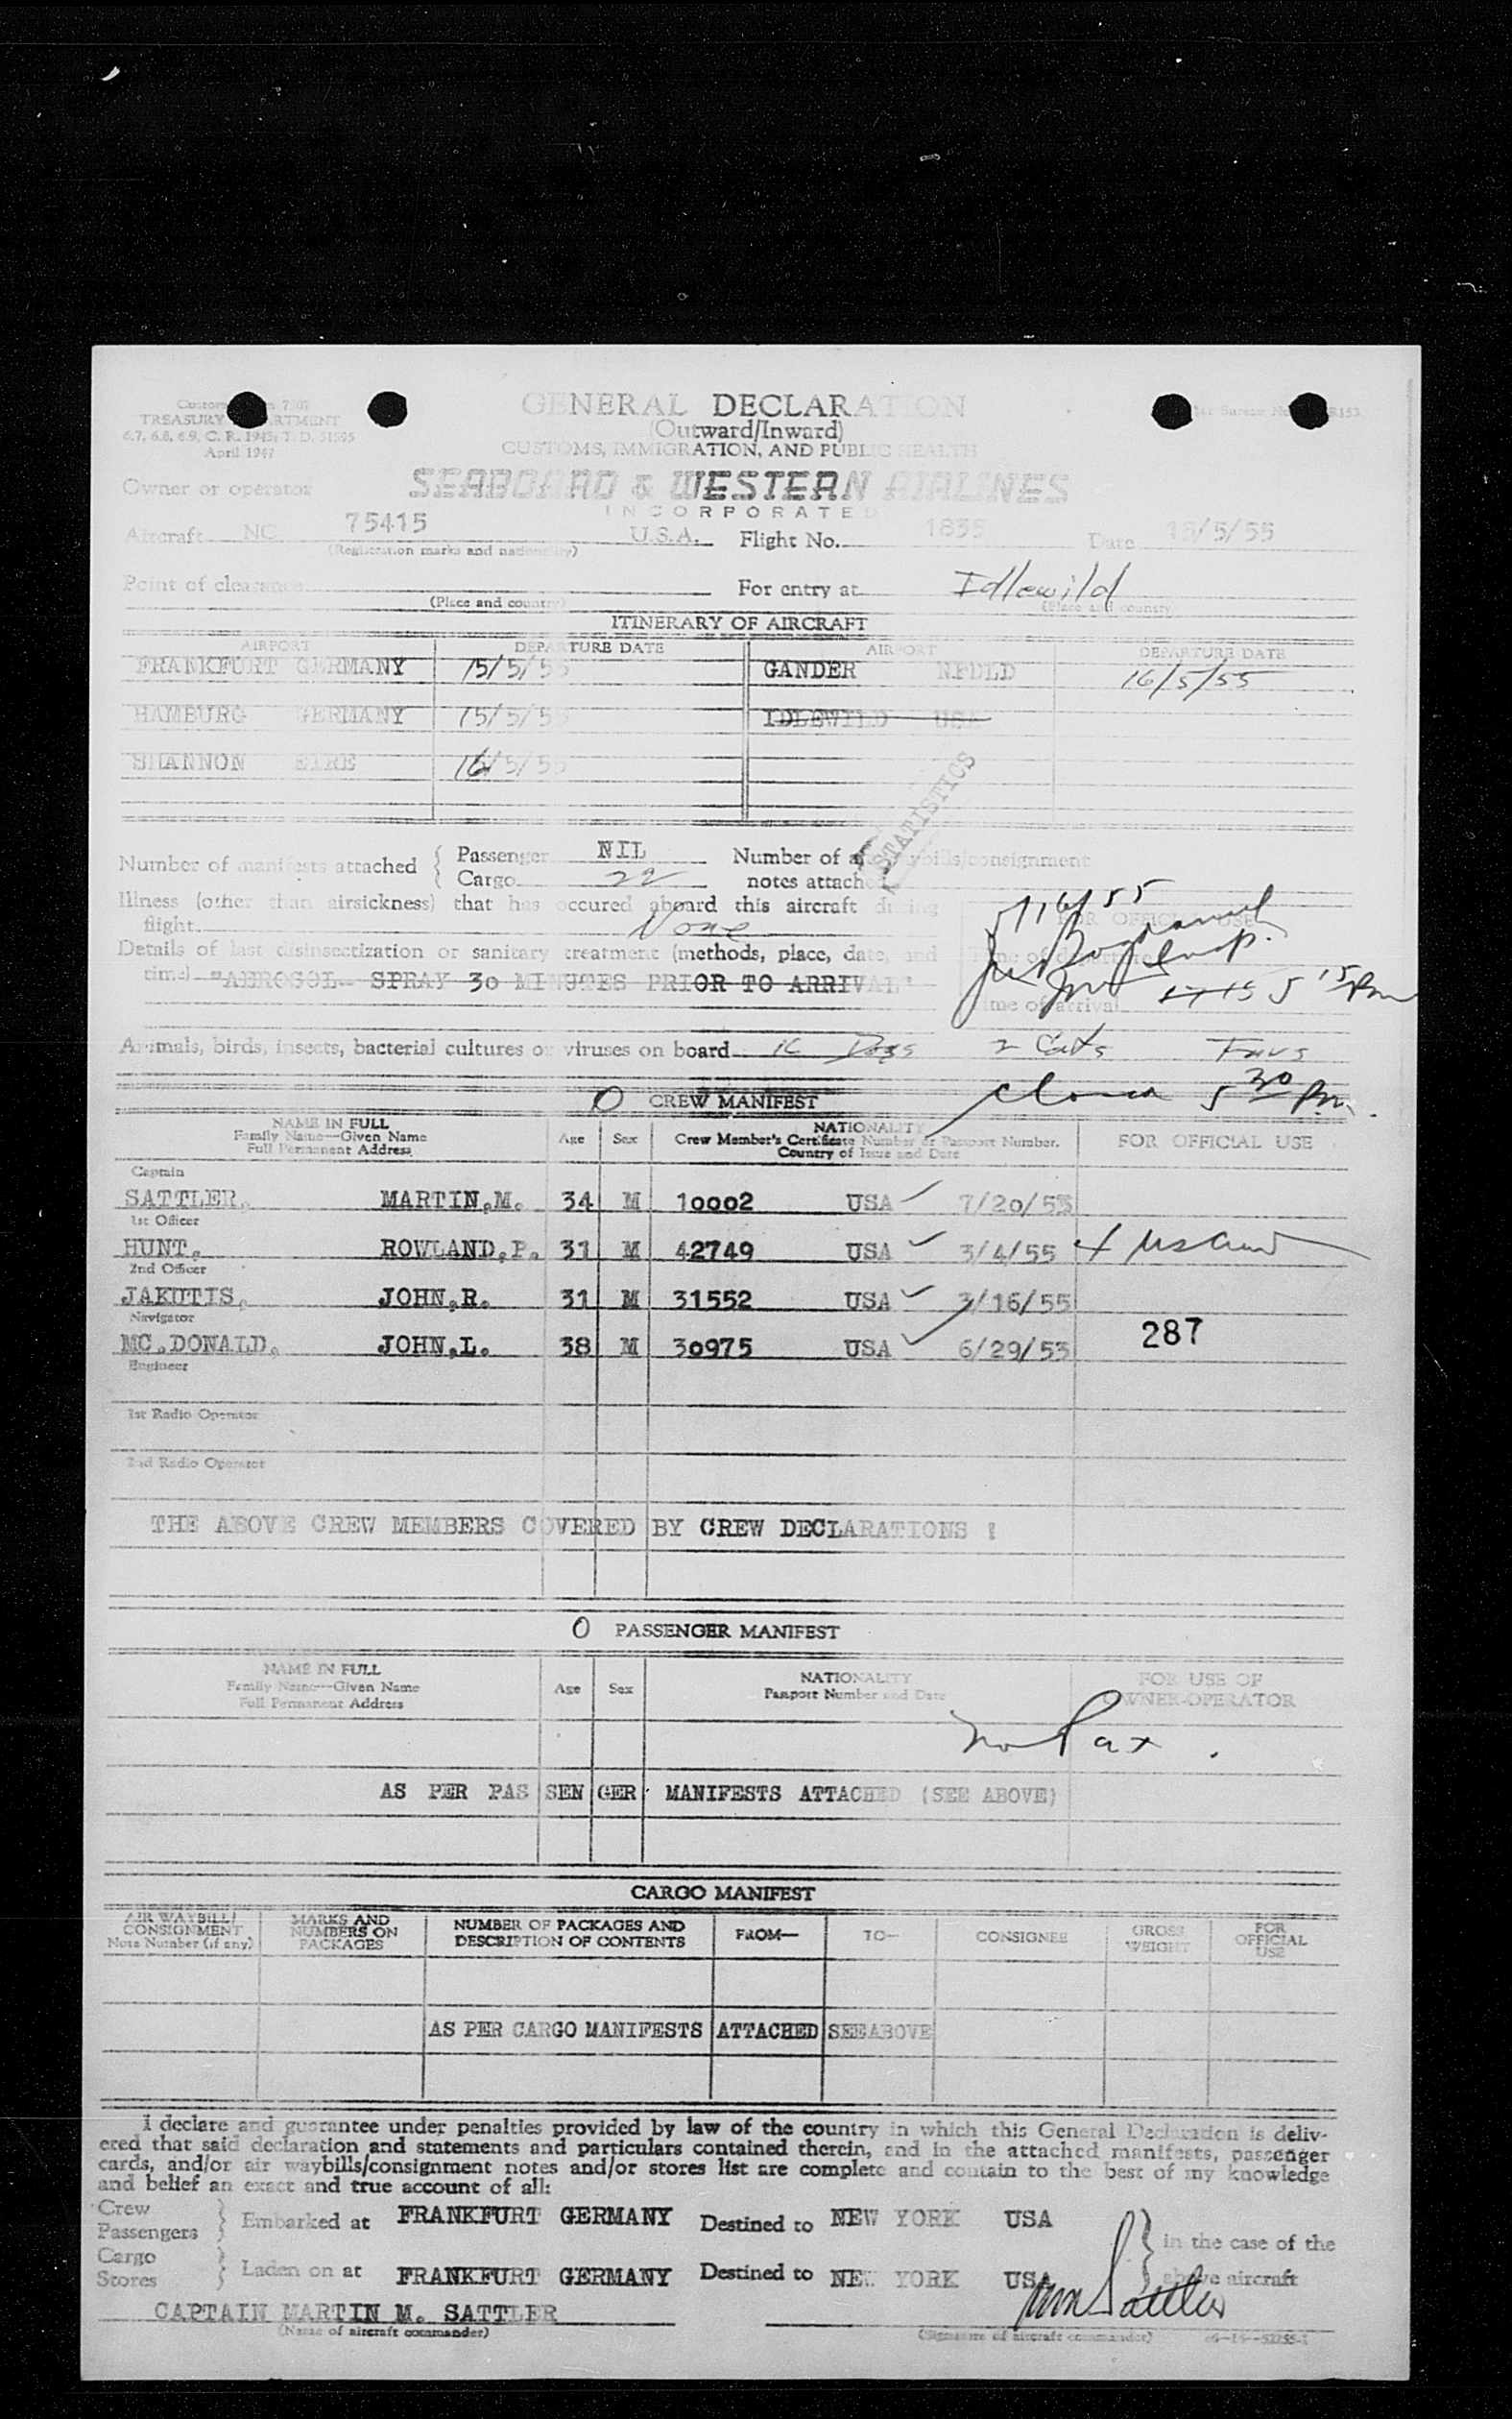 GENERAL DECLARATION
(Outward/Inward)
CUSTOMS, IMMIGRATION, AND PUBLIC HEALTH
TREASURY DEPARTMENT
6.7, 6.8, 6.9, C. R. 1945; T. D. 51595
April 1947
Owner or operator SEABOARD & WESTERN AIRLINES
INCORPORATED
Aircraft NC 75415 U.S.A. Flight No. 1835 Date /5/55
(Registration marks and nationality)
Point of clearance For entry at Idlewild
(Place and country) (Place and country)
ITINERARY OF AIRCRAFT
AIRPORT DEPARTURE DATE AIRPORT DEPARTURE DATE
FRANKFURT GERMANY 15/5/55 GANDER NFDLD 16/5/55
HAMBURG GERMANY 15/5/55 IDLEWILD USA
SHANNON EIRE 16/5/55
STATISTICS
Number of manifests attached { Passenger NIL Number of air waybills/consignment
Cargo 22 notes attached
Illness (other than airsickness) that has occured aboard this aircraft during
flight. None
FOR OFFICIAL USE
Details of last disinsectization or sanitary treatment (methods, place, date, and
time) "AEROSOL SPRAY 30 MINUTES PRIOR TO ARRIVAL"
Time of arrival 5 15 Pm
Animals, birds, insects, bacterial cultures or viruses on board Dogs 2 Cats
5 30 Pm.
O CREW MANIFEST
NAME IN FULL
Family Name—Given Name
Full Permanent Address
Age Sex
NATIONALITY
Crew Member's Certificate Number or Passport Number.
Country of Issue and Date
FOR OFFICIAL USE
Captain
SATTLER, MARTIN.M. 34 M 10002 USA 7/20/53
1st Officer
HUNT, ROWLAND.P. 31 M 42749 USA 3/4/55
2nd Officer
JAKUTIS, JOHN.R. 31 M 31552 USA 3/16/55
Navigator
MC.DONALD, JOHN.L. 38 M 30975 USA 6/29/53 287
Engineer
1st Radio Operator
2nd Radio Operator
THE ABOVE CREW MEMBERS COVERED BY CREW DECLARATIONS !
O PASSENGER MANIFEST
NAME IN FULL
Family Name—Given Name
Full Permanent Address
Age Sex
NATIONALITY
Passport Number and Date
FOR USE OF
OWNER-OPERATOR
no Pax.
AS PER PASSENGER MANIFESTS ATTACHED (SEE ABOVE)
CARGO MANIFEST
AIR WAYBILL/
CONSIGNMENT
Note Number (if any)
MARKS AND
NUMBERS ON
PACKAGES
NUMBER OF PACKAGES AND
DESCRIPTION OF CONTENTS
FROM— TO— CONSIGNEE
GROSS
WEIGHT
FOR
OFFICIAL
USE
AS PER CARGO MANIFESTS ATTACHED SEE ABOVE
I declare and guarantee under penalties provided by law of the country in which this General Declaration is deliv-
ered that said declaration and statements and particulars contained therein, and in the attached manifests, passenger
cards, and/or air waybills/consignment notes and/or stores list are complete and contain to the best of my knowledge
and belief an exact and true account of all:
Crew
Passengers } Embarked at FRANKFURT GERMANY Destined to NEW YORK USA
in the case of the
Cargo
Stores } Laden on at FRANKFURT GERMANY Destined to NEW YORK USA
above aircraft
CAPTAIN MARTIN M. SATTLER MM Sattler
(Name of aircraft commander) (Signature of aircraft commander)